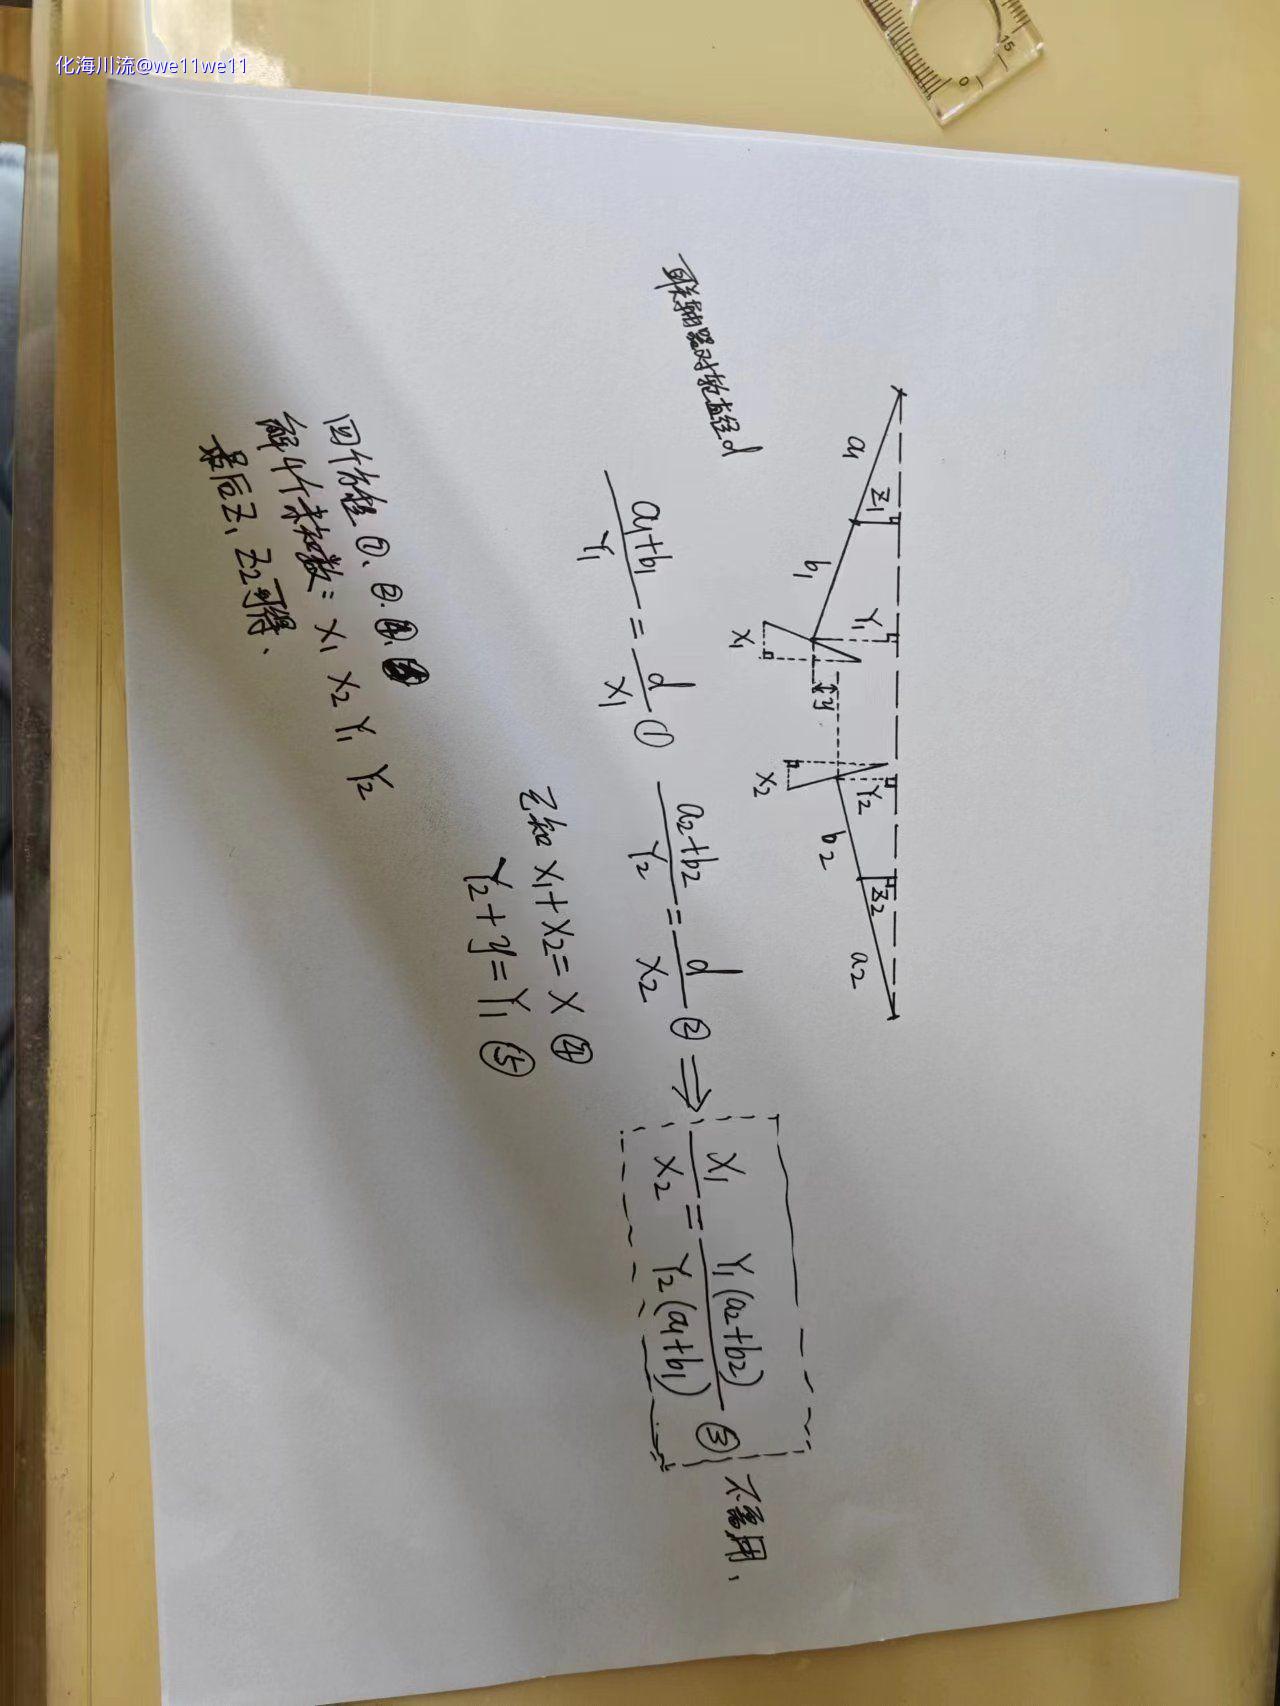 化海川流@we11we11
15
0
a1
Z1
b1
Y1
X1
y
X2
Y2
b2
Z2
a2
联轴器对轮直径d
a1+b1/Y1 = d/X1 ①
a2+b2/Y2 = d/X2 ② ⇒ X1/X2 = Y1(a2+b2)/Y2(a1+b1) ③ 不要用、
已知 X1+X2=X ④
Y2+y=Y1 ⑤
四个方程 ①、②、④、⑤
解4个未知数: X1 X2 Y1 Y2
最后Z1 Z2可得、